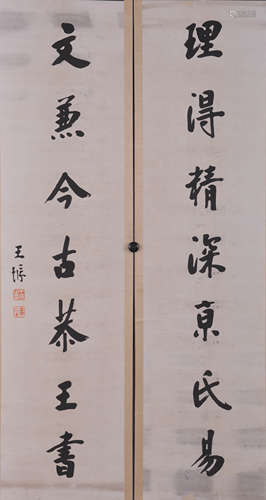 理得精深亰氏易
文兼今古恭王書
王垿